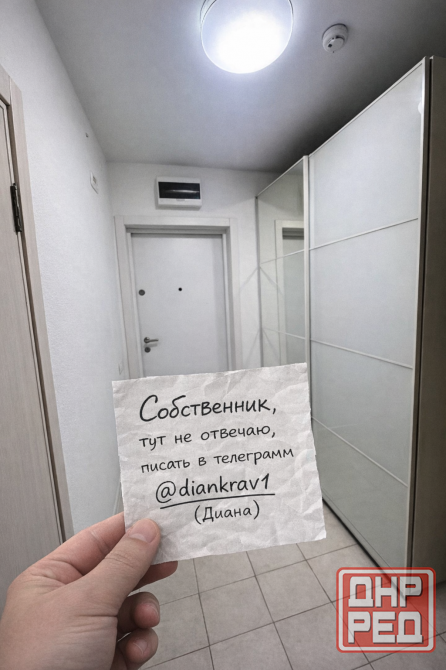 Собственник,
тут не отвечаю,
писать в телеграмм
@diankrav1
(Диана)
ДНР
РЕД